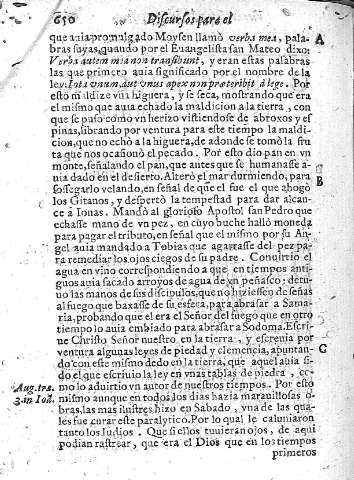 650 Discursos para el
que auia promulgado Moysen llamò verba mea, pala- A
bras suyas, quando por el Euangelista san Mateo dixo:
Verba autem mea non transibunt, y eran estas palabras
las que primero auia significado por el nombre de la
ley: Iota vnum aut vnus apex non præteribit à lege. Por
esto maldize vna higuera, y se seca, mostrando que era
el mismo que auia echado la maldicion a la tierra, con
que se puso como vn herizo vistiendose de abroxos y es
pinas, librando por ventura para este tiempo la maldi-
cion, que no echò a la higuera, de adonde se tomò la fru
ta que nos ocasionò el pecado. Por esto dio pan en vn
monte, señalando el pan, que antes que se humanasse a-
uia dado en el desierto. Alterò el mar durmiendo, para
sossegarlo velando, en señal de que el fue el que ahogò B
los Gitanos, y despertò la tempestad para dar alcan-
ce a Ionas. Mandò al glorioso Apostol san Pedro que
echasse mano de vn pez, en cuyo buche hallò moneda
para pagar el tributo, en señal que el mismo por su An
gel auia mandado a Tobias que agarrasse del pez pa-
ra remediar los ojos ciegos de su padre. Conuirtio el
agua en vino correspondiendo a que en tiempos anti-
guos auia sacado arroyos de agua de vn peñasco; detu-
uo las manos de sus discipulos, que no hiziessen de señas
al fuego que baxasse de su esfera, para abrasar a Sama-
ria, probando que el era el Señor del fuego que en otro
tiempo lo auia embiado para abrasar a Sodoma. Escri-
ue Christo Señor nuestro en la tierra, y escreuia por
ventura algunas leyes de piedad y clemencia, apuntan- C
do con este mismo dedo en la tierra, que aquel auia si-
do el que escriuio la ley en vnas tablas de piedra, co-
Aug. tra. mo lo aduirtio vn autor de nuestros tiempos. Por esto
3. in Ioã. mismo aunque en todos los dias hazia marauillosas o-
bras, las mas ilustres hizo en Sabado, vna de las qua-
les fue curar este paralytico. Por lo qual le caluniaron
tanto los Iudios. Que si ellos tuuieran ojos, de aqui
podian rastrear, que era el Dios que en los tiempos
primeros